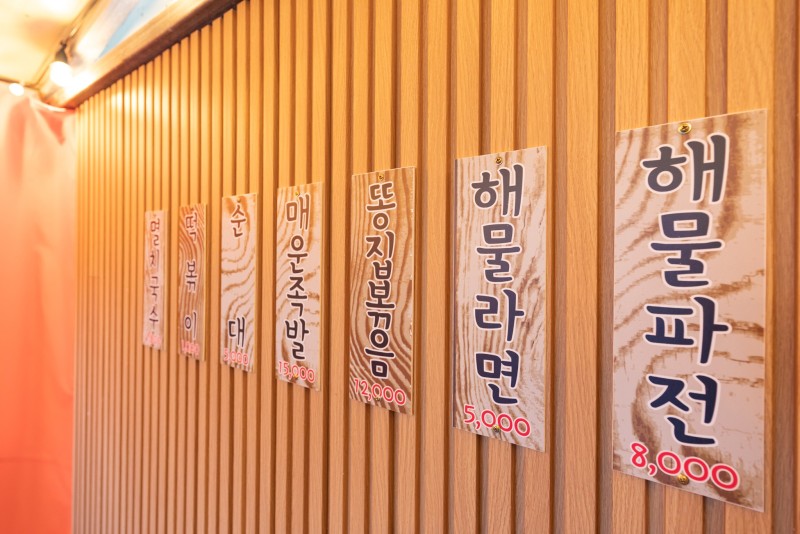 멸치국수
떡볶이
순대
매운족발
15,000
똥집볶음
12,000
해물라면
5,000
해물파전
8,000